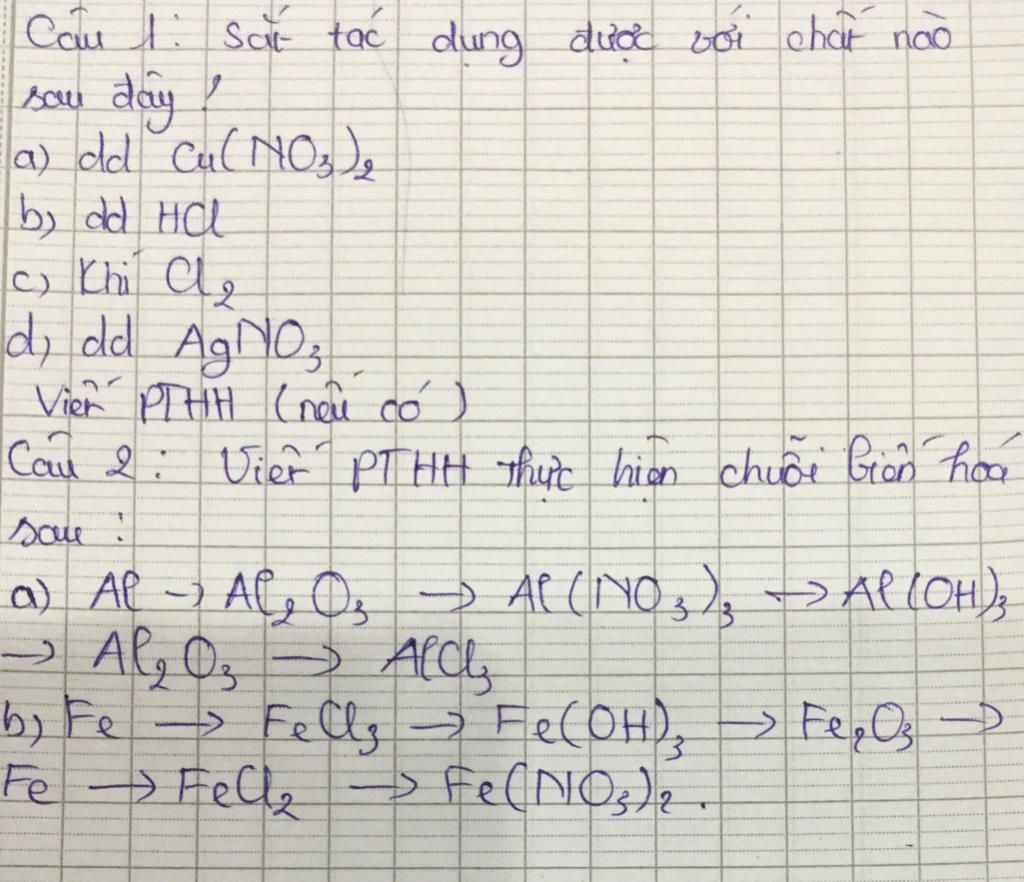 Câu 1: Sắt tác dụng được với chất nào
sau đây!
a) dd Cu(NO₃)₂
b) dd HCl
c) Khí Cl₂
d) dd AgNO₃
Viết PTHH (nếu có)
Câu 2: Viết PTHH thực hiện chuỗi biến hoá
sau:
a) Al → Al₂O₃ → Al(NO₃)₃ → Al(OH)₃
→ Al₂O₃ → AlCl₃
b) Fe → FeCl₃ → Fe(OH)₃ → Fe₂O₃ →
Fe → FeCl₂ → Fe(NO₃)₂.